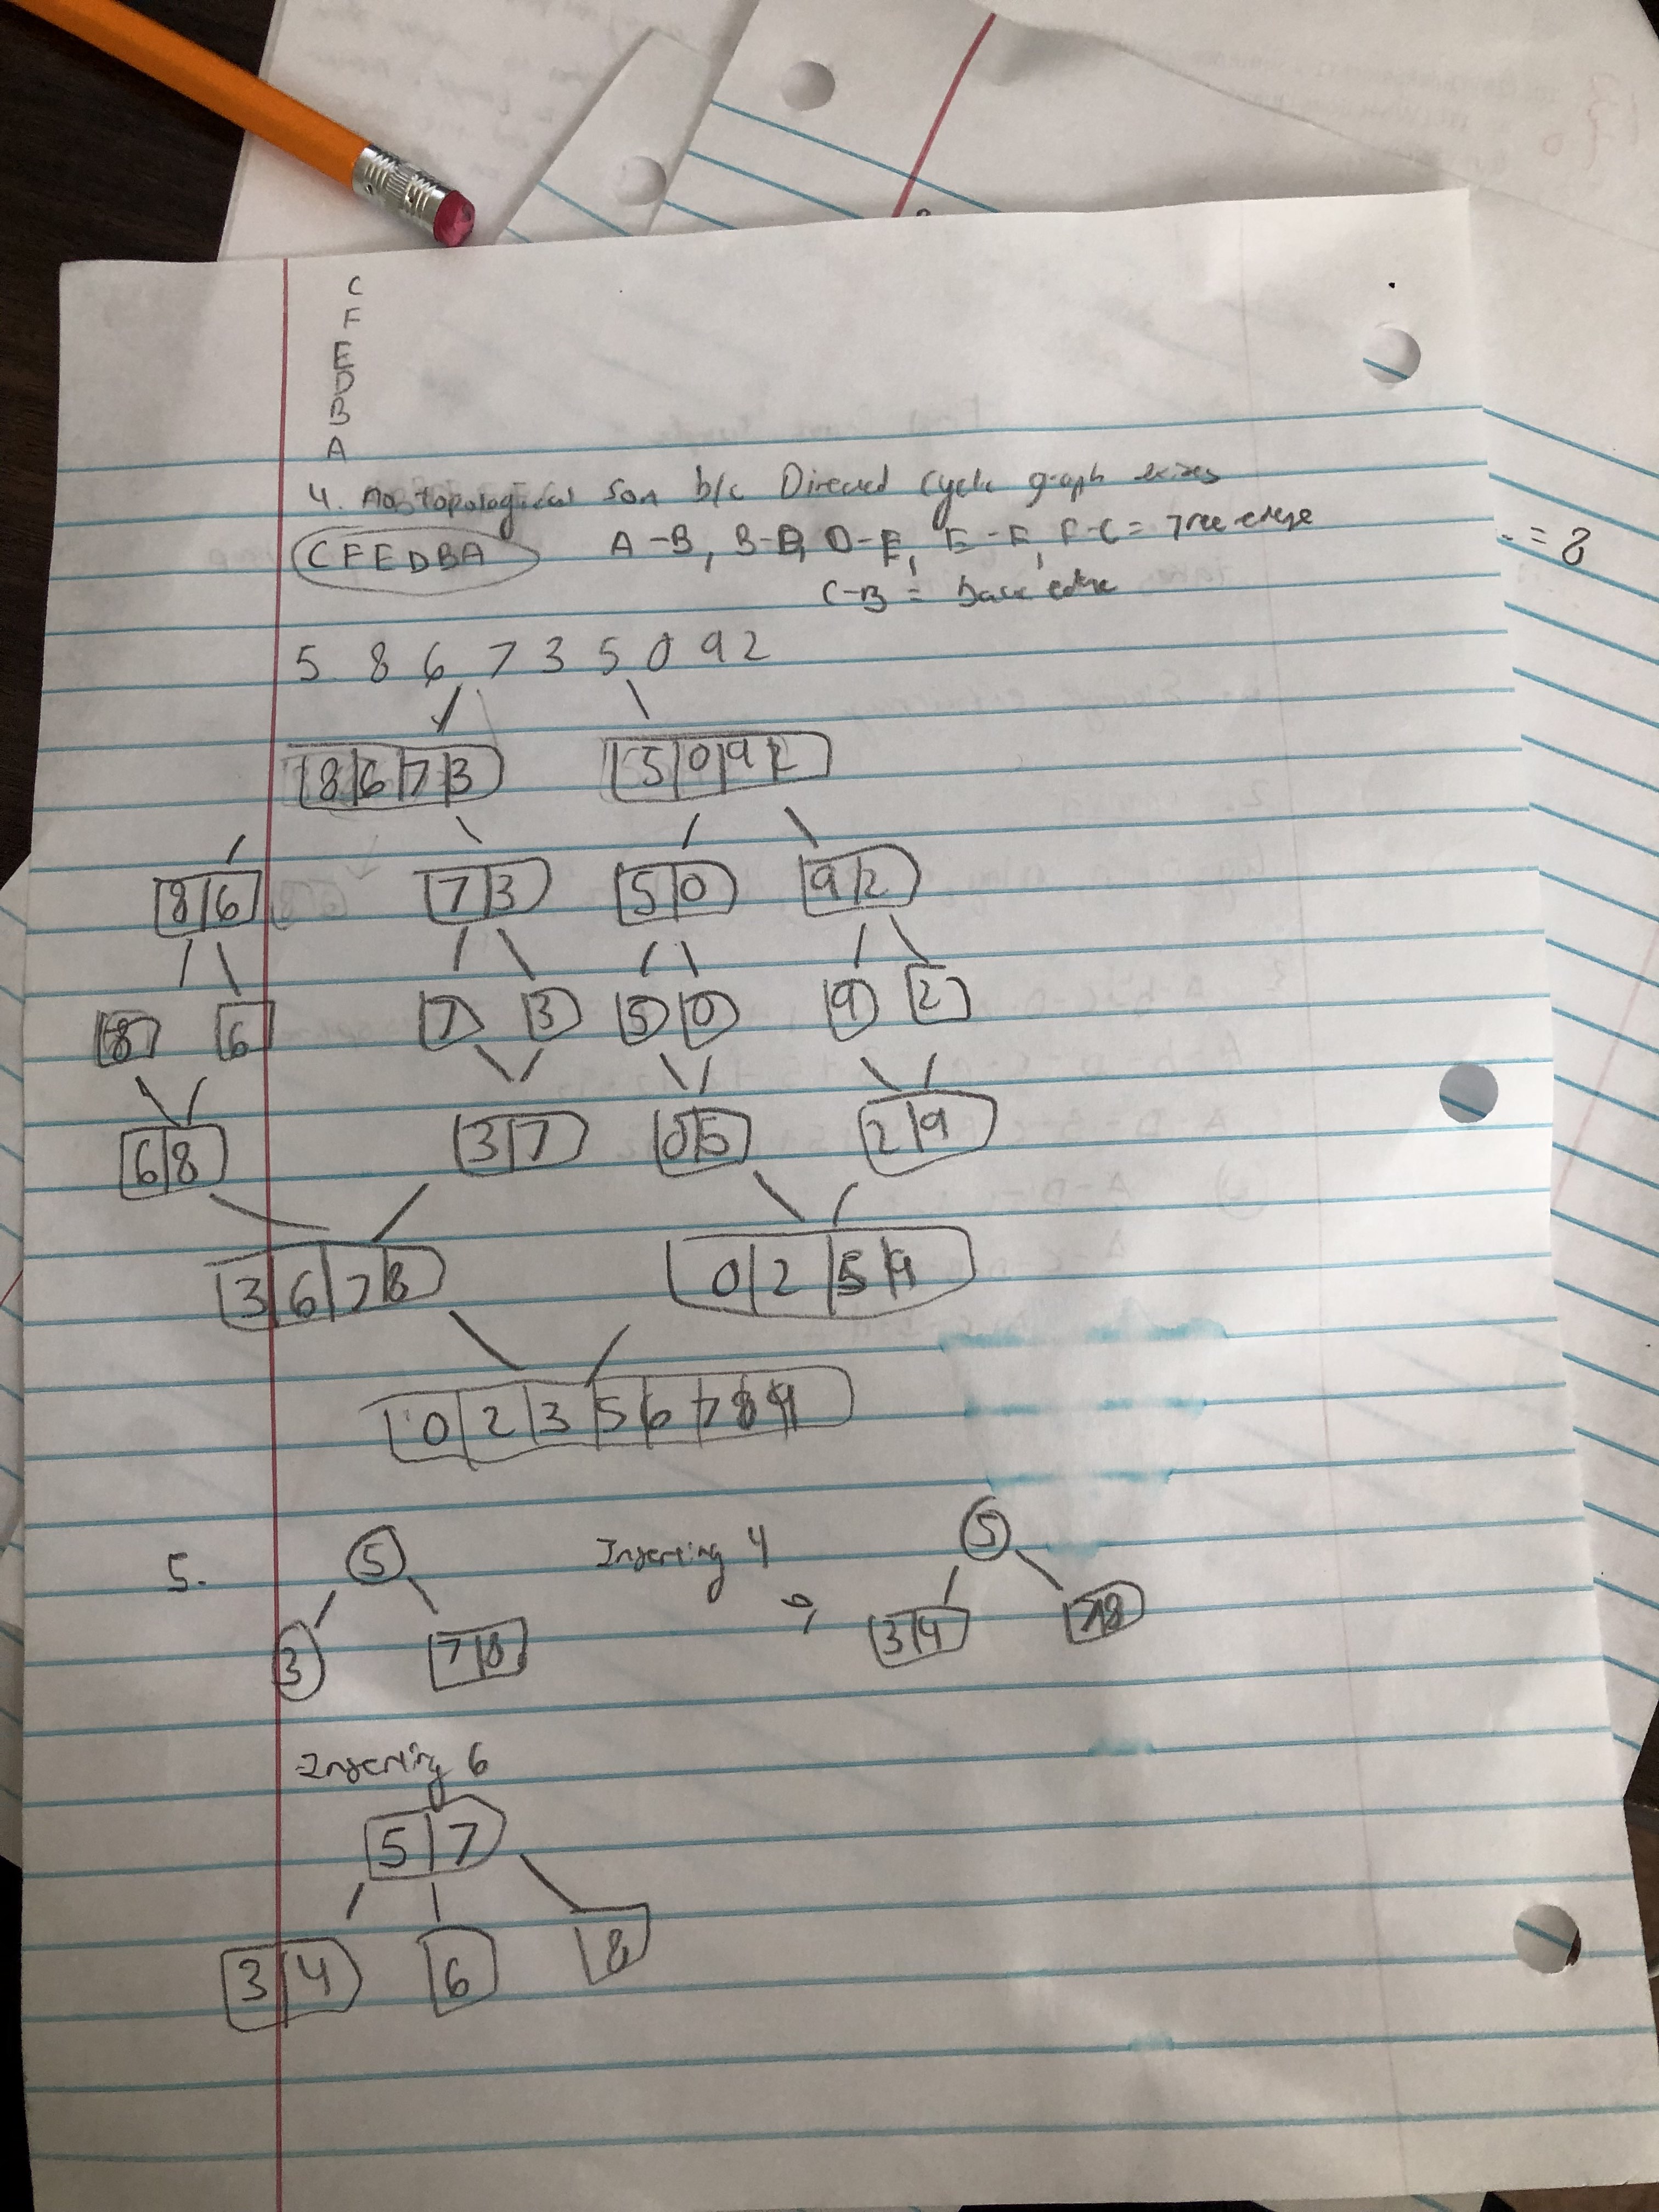 C
F
E
D
B
A
4. No topological sort b/c Directed cycle graph exists
CFEDBA A-B, B-D, D-E, E-F, F-C = Tree edge
C-B = back edge
= 8
5. 8 6 7 3 5 0 9 2
8 6 7 3 5 0 9 2
8 6 7 3 5 0 9 2
8 6 7 3 5 0 9 2
6 8 3 7 0 5 2 9
3 6 7 8 0 2 5 9
0 2 3 5 6 7 8 9
5. 5 Inserting 4 5
3 7 8 => 3 4 7 8
Inserting 6
5 7
3 4 6 8